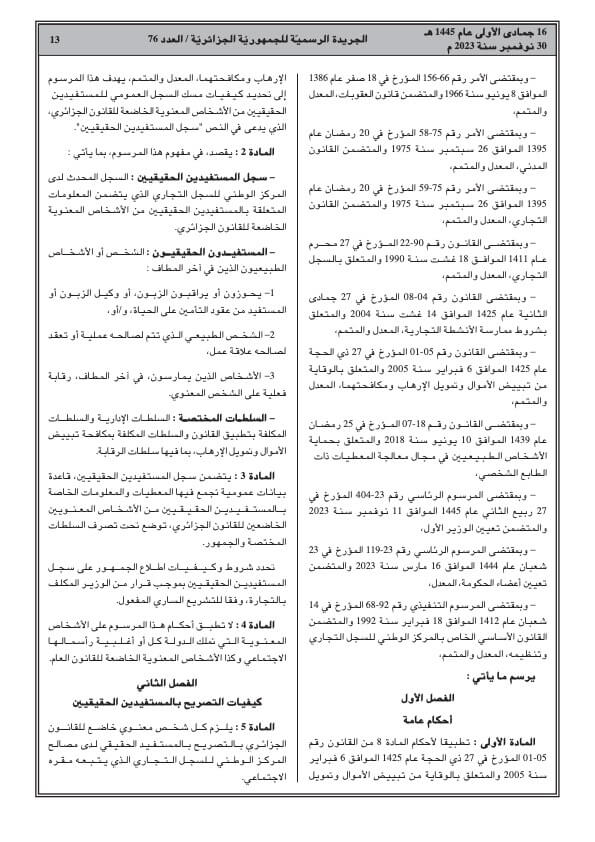 16 جمادى الأولى عام 1445 هـ
30 نوفمبر سنة 2023 م
الجريدة الرسميّة للجمهوريّة الجزائريّة / العدد 76
13
– وبمقتضى الأمر رقم 66-156 المؤرخ في 18 صفر عام 1386
الموافق 8 يونيو سنة 1966 والمتضمن قانون العقوبات، المعدل
والمتمم،
– وبمقتضى الأمر رقم 75-58 المؤرخ في 20 رمضان عام
1395 الموافق 26 سبتمبر سنة 1975 والمتضمن القانون
المدني، المعدل والمتمم،
– وبمقتضى الأمر رقم 75-59 المؤرخ في 20 رمضان عام
1395 الموافق 26 سبتمبر سنة 1975 والمتضمن القانون
التجاري، المعدل والمتمم،
– وبمقتضى القانون رقم 90-22 المؤرخ في 27 محرم
عام 1411 الموافق 18 غشت سنة 1990 والمتعلق بالسجل
التجاري، المعدل والمتمم،
– وبمقتضى القانون رقم 04-08 المؤرخ في 27 جمادى
الثانية عام 1425 الموافق 14 غشت سنة 2004 والمتعلق
بشروط ممارسة الأنشطة التجارية، المعدل والمتمم،
– وبمقتضى القانون رقم 05-01 المؤرخ في 27 ذي الحجة
عام 1425 الموافق 6 فبراير سنة 2005 والمتعلق بالوقاية
من تبييض الأموال وتمويل الإرهاب ومكافحتهما، المعدل
والمتمم،
– وبمقتضى القانون رقم 18-07 المؤرخ في 25 رمضان
عام 1439 الموافق 10 يونيو سنة 2018 والمتعلق بحماية
الأشخاص الطبيعيين في مجال معالجة المعطيات ذات
الطابع الشخصي،
– وبمقتضى المرسوم الرئاسي رقم 23-404 المؤرخ في
27 ربيع الثاني عام 1445 الموافق 11 نوفمبر سنة 2023
والمتضمن تعيين الوزير الأول،
– وبمقتضى المرسوم الرئاسي رقم 23-119 المؤرخ في 23
شعبان عام 1444 الموافق 16 مارس سنة 2023 والمتضمن
تعيين أعضاء الحكومة، المعدل،
– وبمقتضى المرسوم التنفيذي رقم 92-68 المؤرخ في 14
شعبان عام 1412 الموافق 18 فبراير سنة 1992 والمتضمن
القانون الأساسي الخاص بالمركز الوطني للسجل التجاري
وتنظيمه، المعدل والمتمم،
يرسم ما يأتي :
الفصل الأول
أحكام عامة
المادة الأولى : تطبيقا لأحكام المادة 8 من القانون رقم
05-01 المؤرخ في 27 ذي الحجة عام 1425 الموافق 6 فبراير
سنة 2005 والمتعلق بالوقاية من تبييض الأموال وتمويل
الإرهاب ومكافحتهما، المعدل والمتمم، يهدف هذا المرسوم
إلى تحديد كيفيات مسك السجل العمومي للمستفيدين
الحقيقيين من الأشخاص المعنوية الخاضعة للقانون الجزائري،
الذي يدعى في النص "سجل المستفيدين الحقيقيين".
المادة 2 : يقصد، في مفهوم هذا المرسوم، بما يأتي :
– سجل المستفيدين الحقيقيين : السجل المحدث لدى
المركز الوطني للسجل التجاري الذي يتضمن المعلومات
المتعلقة بالمستفيدين الحقيقيين من الأشخاص المعنوية
الخاضعة للقانون الجزائري.
– المستفيدون الحقيقيون : الشخص أو الأشخاص
الطبيعيون الذين في آخر المطاف :
1– يحوزون أو يراقبون الزبون، أو وكيل الزبون أو
المستفيد من عقود التأمين على الحياة، و/أو،
2– الشخص الطبيعي الذي تتم لصالحه عملية أو تعقد
لصالحه علاقة عمل،
3– الأشخاص الذين يمارسون، في آخر المطاف، رقابة
فعلية على الشخص المعنوي.
– السلطات المختصة : السلطات الإدارية والسلطات
المكلفة بتطبيق القانون والسلطات المكلفة بمكافحة تبييض
الأموال وتمويل الإرهاب، بما فيها سلطات الرقابة.
المادة 3 : يتضمن سجل المستفيدين الحقيقيين، قاعدة
بيانات عمومية تجمع فيها المعطيات والمعلومات الخاصة
بالمستفيدين الحقيقيين من الأشخاص المعنويين
الخاضعين للقانون الجزائري، توضع تحت تصرف السلطات
المختصة والجمهور.
تحدد شروط وكيفيات اطلاع الجمهور على سجل
المستفيدين الحقيقيين بموجب قرار من الوزير المكلف
بالتجارة، وفقا للتشريع الساري المفعول.
المادة 4 : لا تطبق أحكام هذا المرسوم على الأشخاص
المعنوية التي تملك الدولة كل أو أغلبية رأسمالها
الاجتماعي وكذا الأشخاص المعنوية الخاضعة للقانون العام.
الفصل الثاني
كيفيات التصريح بالمستفيدين الحقيقيين
المادة 5 : يلزم كل شخص معنوي خاضع للقانون
الجزائري بالتصريح بالمستفيد الحقيقي لدى مصالح
المركز الوطني للسجل التجاري الذي يتبعه مقره
الاجتماعي.